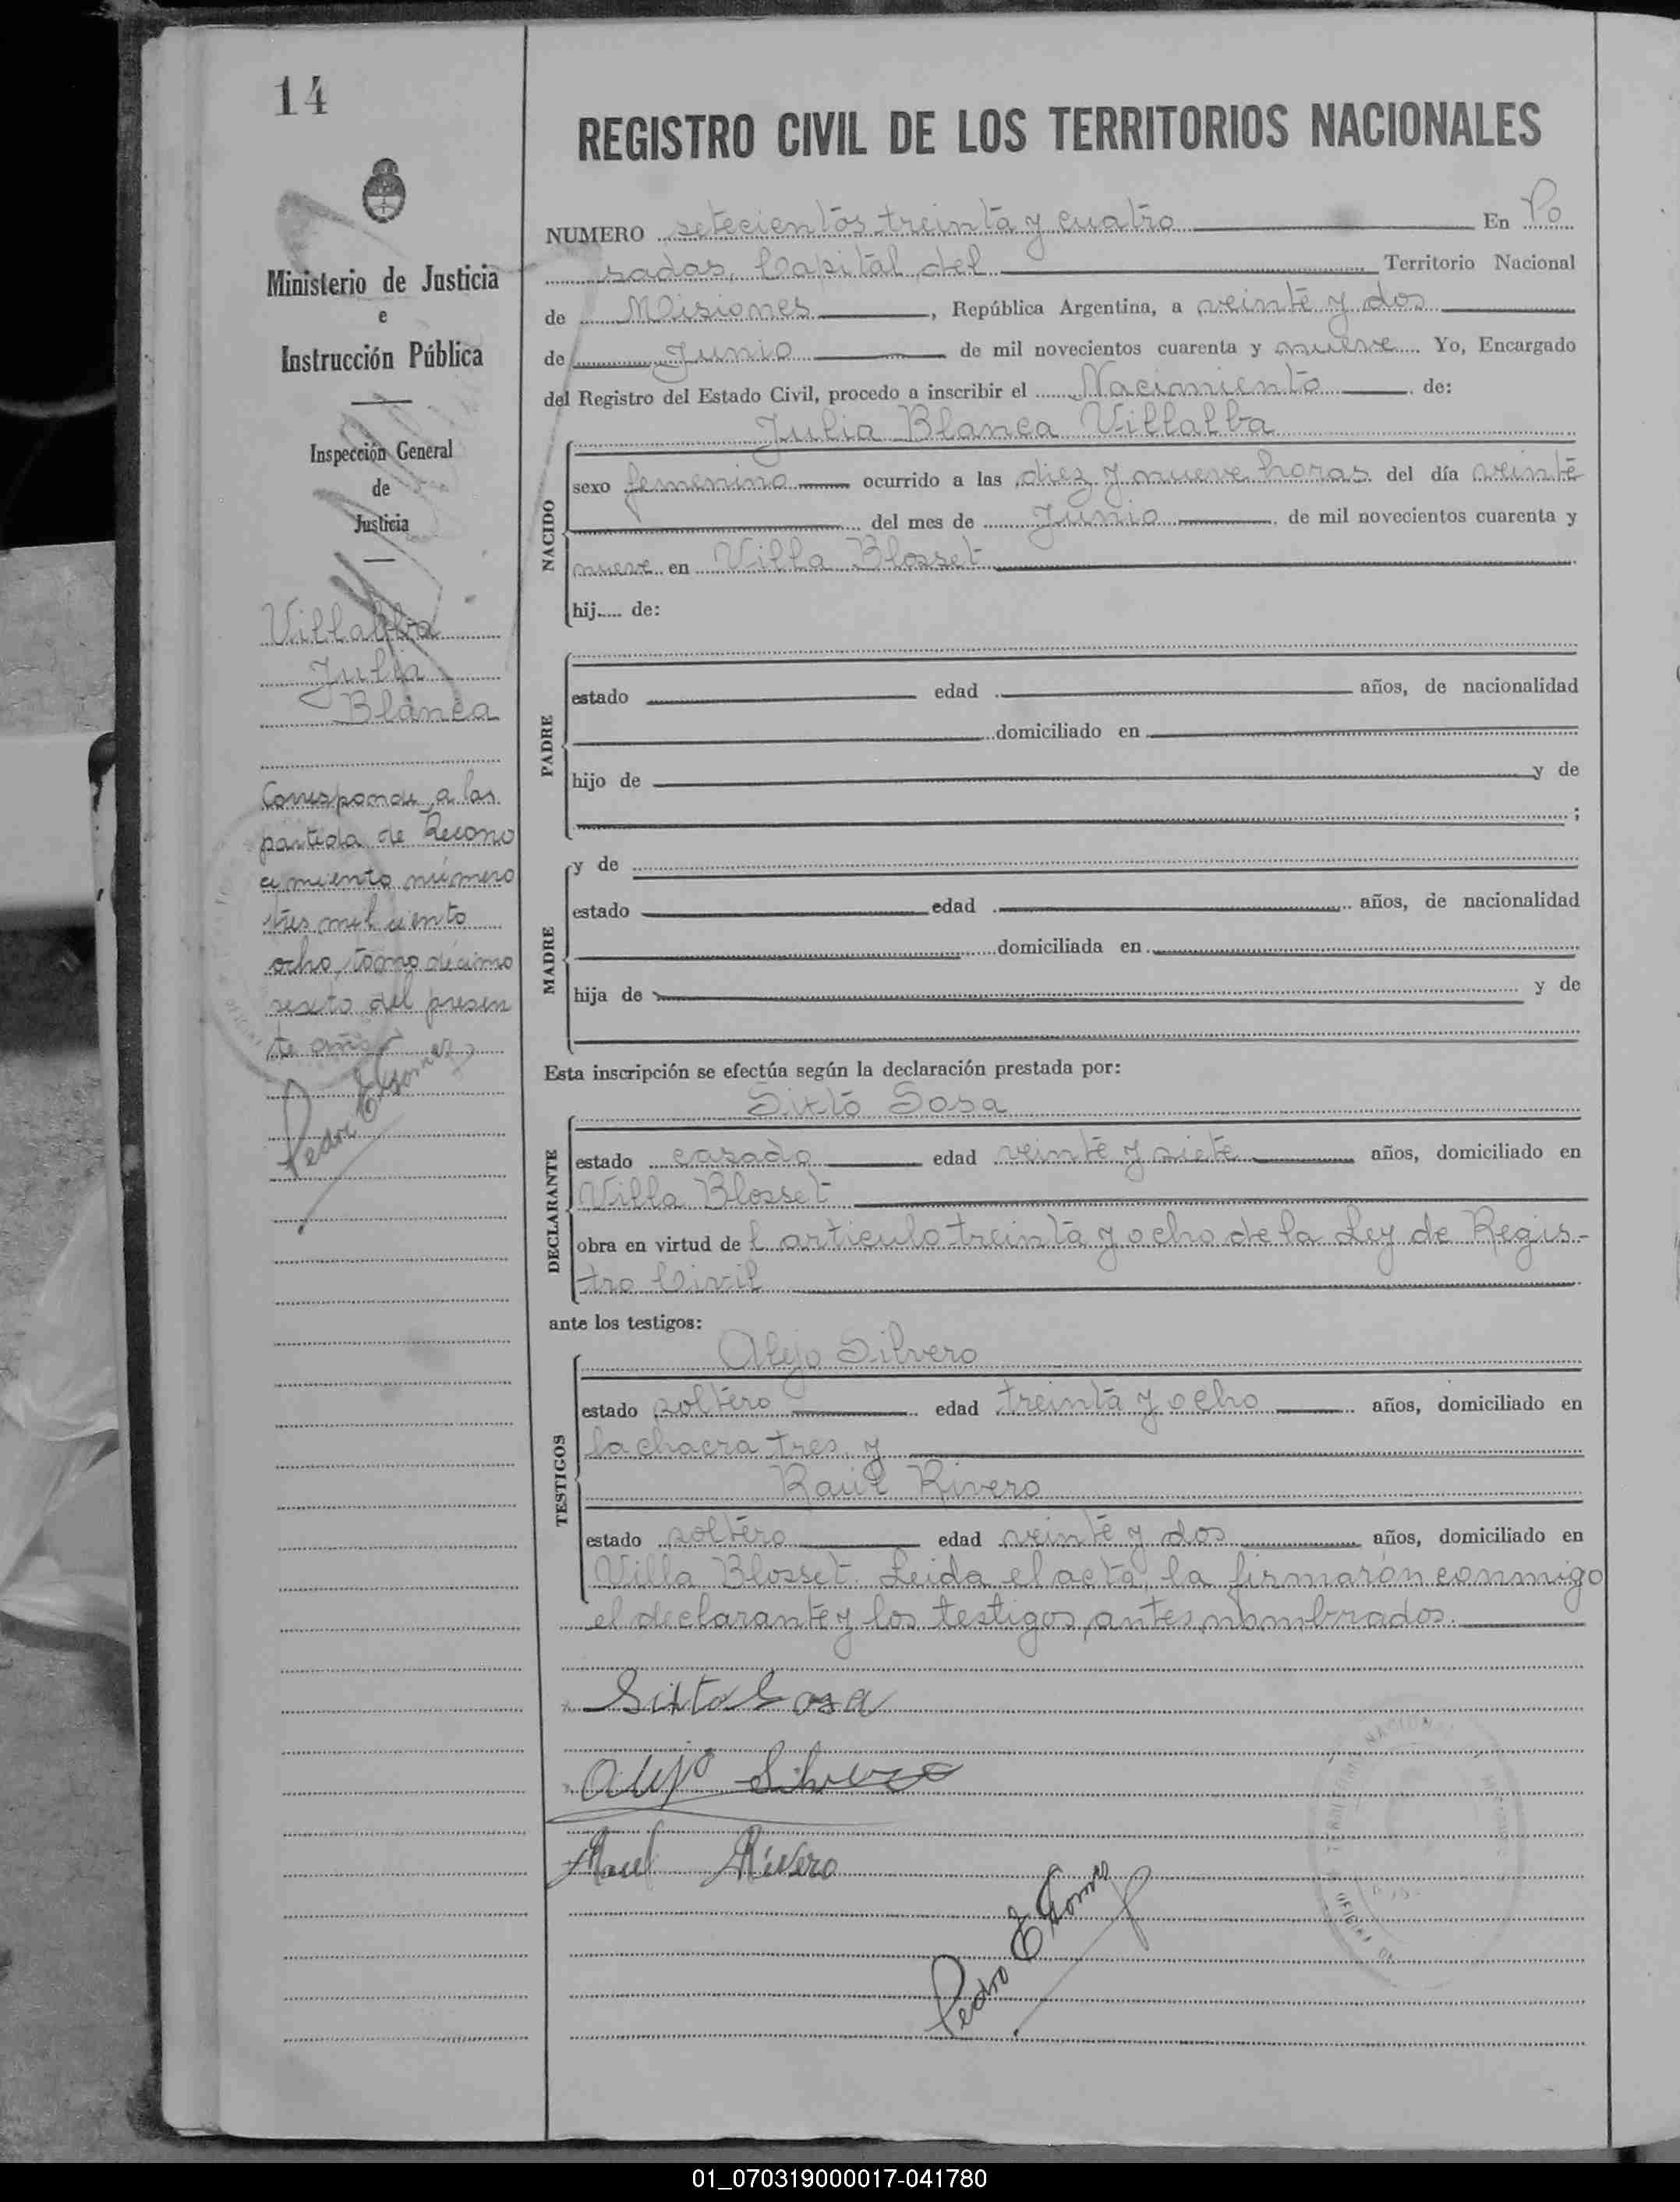 14
Ministerio de Justicia
e
Instrucción Pública
Inspección General
de
Justicia
Villalba
Julia
Blanca
Corresponde a las
partida de Recono
cimiento número
tres mil ciento
ocho, tomo décimo
sexto del presen
te año
Pedro E Gomez
REGISTRO CIVIL DE LOS TERRITORIOS NACIONALES
NUMERO setecientos treinta y cuatro En Po
sadas, Capital del Territorio Nacional
de Misiones, República Argentina, a veinte y dos
de Junio de mil novecientos cuarenta y nueve Yo, Encargado
del Registro del Estado Civil, procedo a inscribir el Nacimiento de:
Julia Blanca Villalba
NACIDO
sexo femenino ocurrido a las diez y nueve horas del día veinte
del mes de Junio de mil novecientos cuarenta y
nueve en Villa Blosset
hij..... de:
PADRE
estado edad años, de nacionalidad
domiciliado en
hijo de y de
;
MADRE
y de
estado edad años, de nacionalidad
domiciliada en
hija de y de
Esta inscripción se efectúa según la declaración prestada por:
Sixto Sosa
DECLARANTE
estado casado edad veinte y siete años, domiciliado en
Villa Blosset
obra en virtud de l articulo treinta y ocho de la Ley de Regis-
tro Civil
ante los testigos:
Alejo Silvero
TESTIGOS
estado soltero edad treinta y ocho años, domiciliado en
la chacra tres, y
Raúl Rivero
estado soltero edad veinte y dos años, domiciliado en
Villa Blosset. Leida el acta, la firmaron conmigo
el declarante y los testigos antes nombrados.
Sixto Sosa
Alejo Silvero
Raul Rivero
Pedro E Gomez
01_070319000017-041780